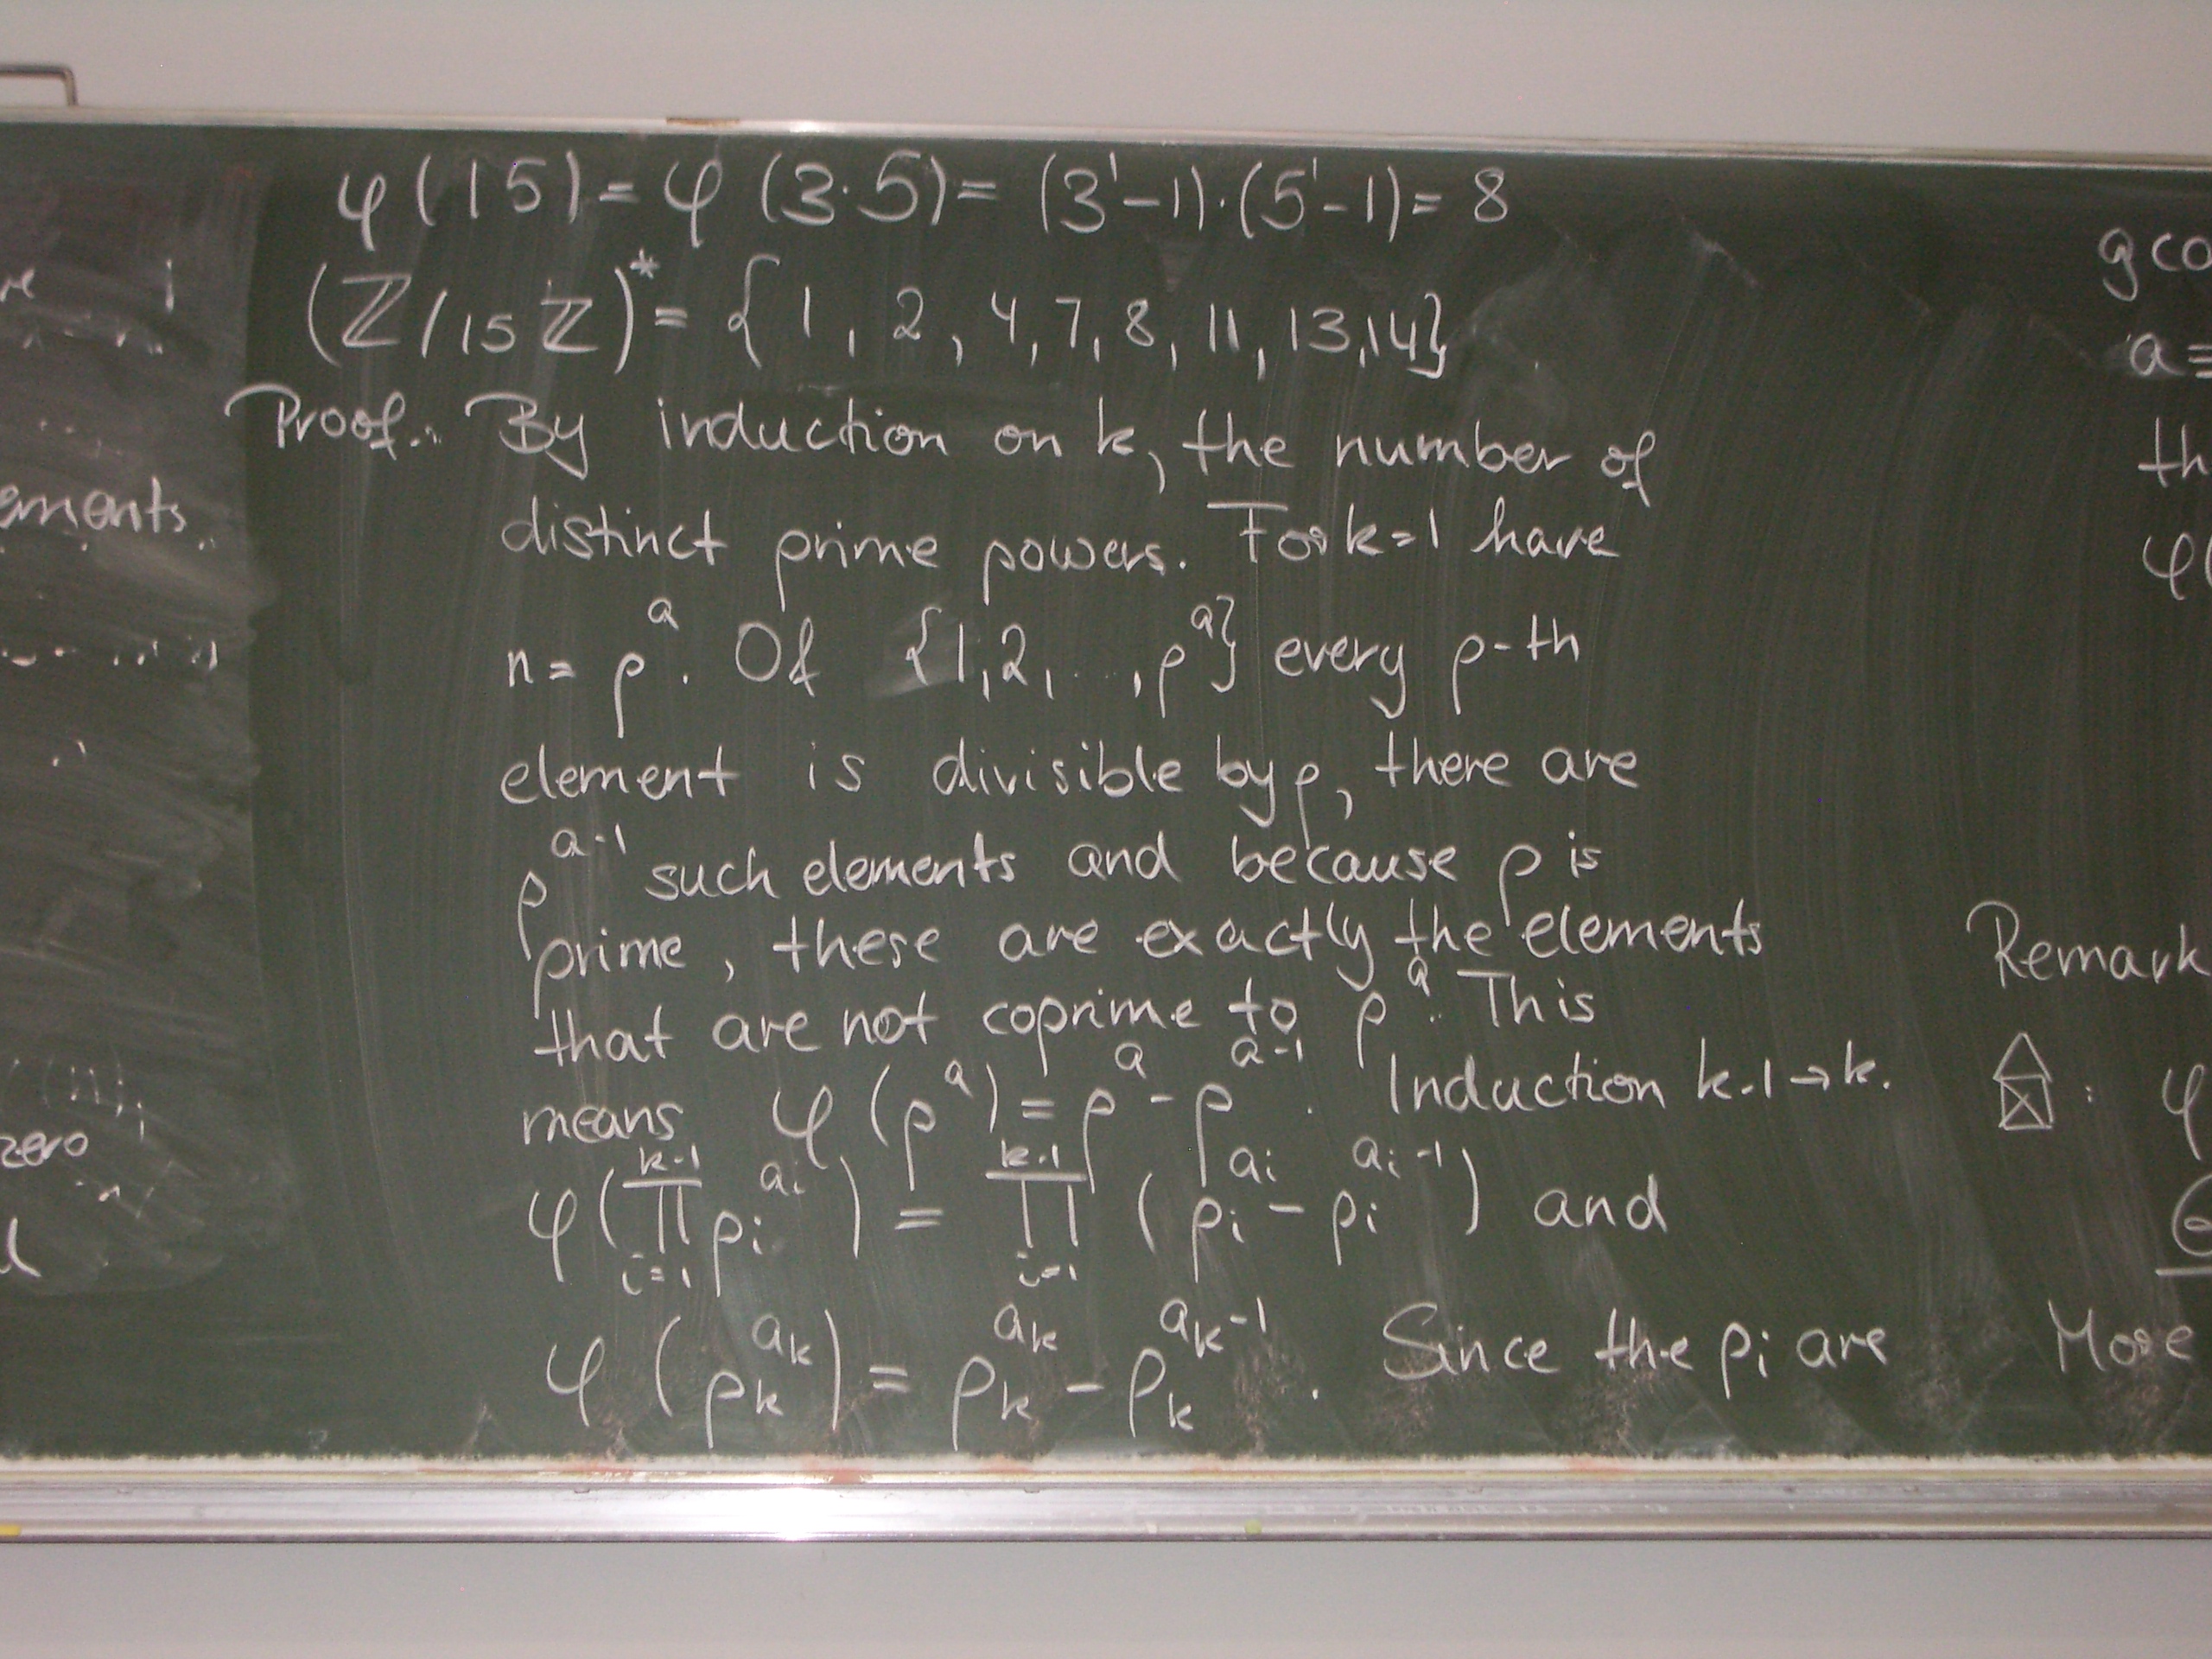 φ(15) = φ(3·5) = (3¹-1)·(5¹-1) = 8
(ℤ/15ℤ)* = {1, 2, 4, 7, 8, 11, 13, 14}
Proof: By induction on k, the number of
distinct prime powers. For k=1 have
n = p^a. Of {1,2,...,p^a} every p-th
element is divisible by p, there are
p^{a-1} such elements and because p is
prime, these are exactly the elements
that are not coprime to p^a. This
means φ(p^a) = p^a - p^{a-1}. Induction k-1→k.
φ(∏_{i=1}^{k-1} p_i^{a_i}) = ∏_{i=1}^{k-1} (p_i^{a_i} - p_i^{a_i-1}) and
φ(p_k^{a_k}) = p_k^{a_k} - p_k^{a_k-1}. Since the p_i are
ements
zero
gcd
a≡
th
φ(
Remark
: φ
More